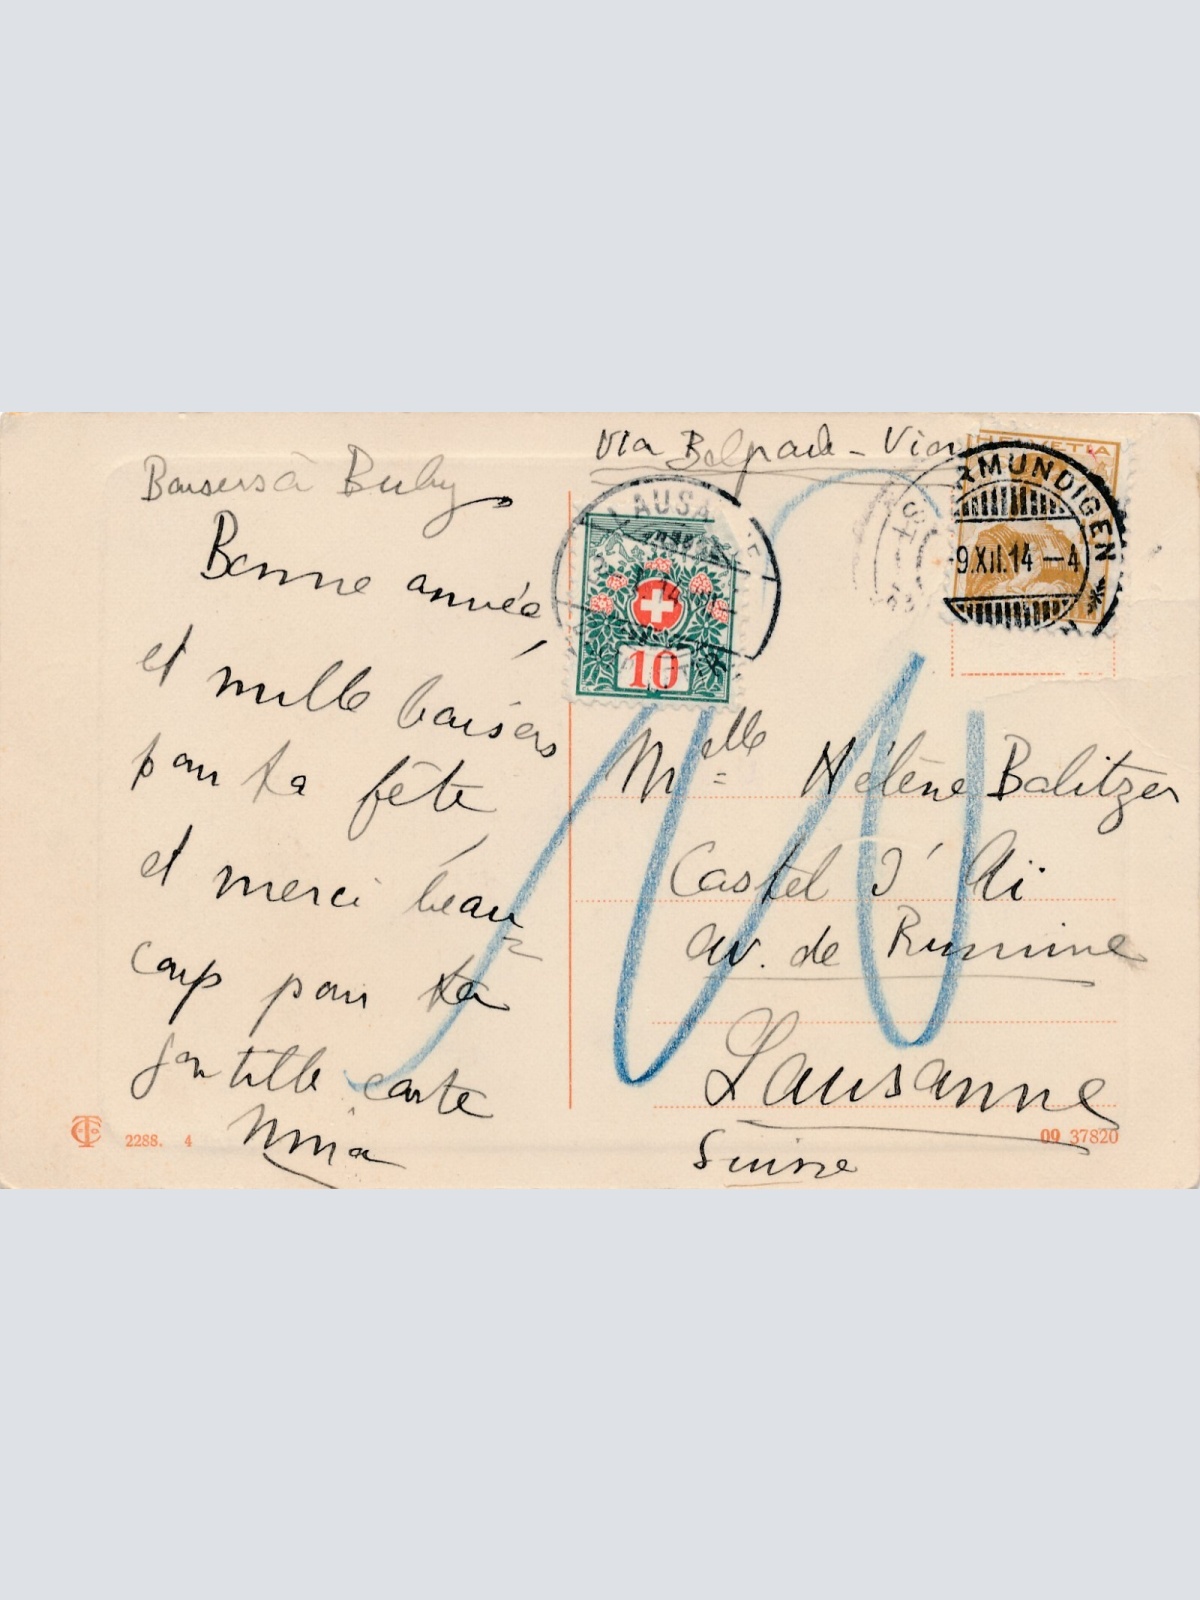 Via Belgrade - Vien
Baisers à Buby
Bonne année
et mille baisers
pour ta fête
et merci beau-
coup pour ta
gentille carte
Nina
LAUSANNE
10
HELVETIA
RMUNDIGEN
9.XII.14 -4
Melle Hélène Balitzer
Castel d'Aï
av. de Rumine
Lausanne
Suisse
2288. 4
09 37820